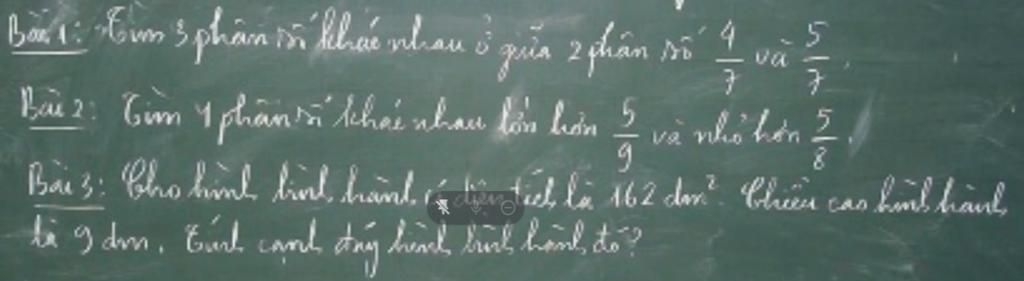 Bài 1: Tìm 3 phân số khác nhau ở giữa 2 phân số 4/7 và 5/7.
Bài 2: Tìm 4 phân số khác nhau lớn hơn 5/9 và nhỏ hơn 5/8.
Bài 3: Cho hình bình hành có diện tích là 162 dm². Chiều cao hình hành
là 9 dm. Tính cạnh đáy hình bình hành đó?